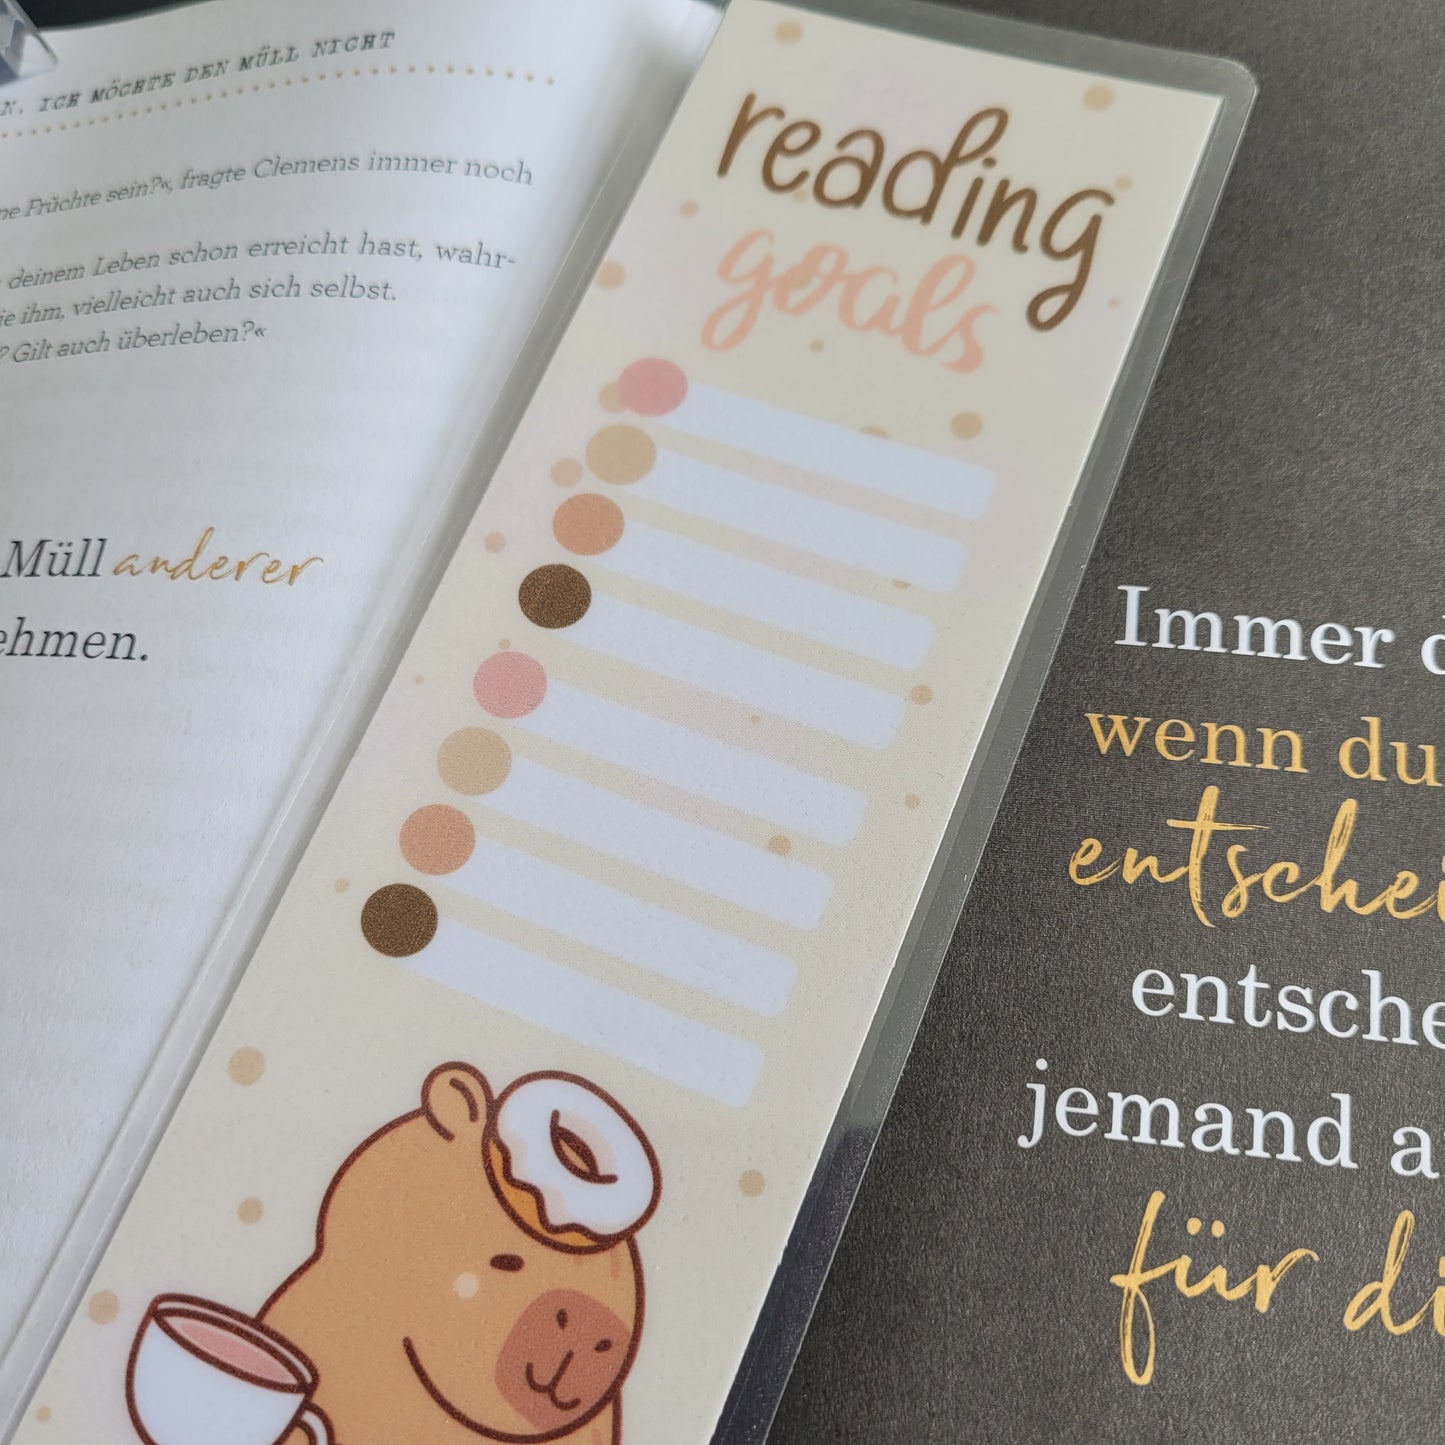 N. ICH MÖCHTE DEN MÜLL NICHT
ne Früchte sein?«, fragte Clemens immer noch
deinem Leben schon erreicht hast, wahr-
ie ihm, vielleicht auch sich selbst.
? Gilt auch überleben?«
Müll anderer
ehmen.
reading
goals
Immer d
wenn du
entschei
entsche
jemand a
für di